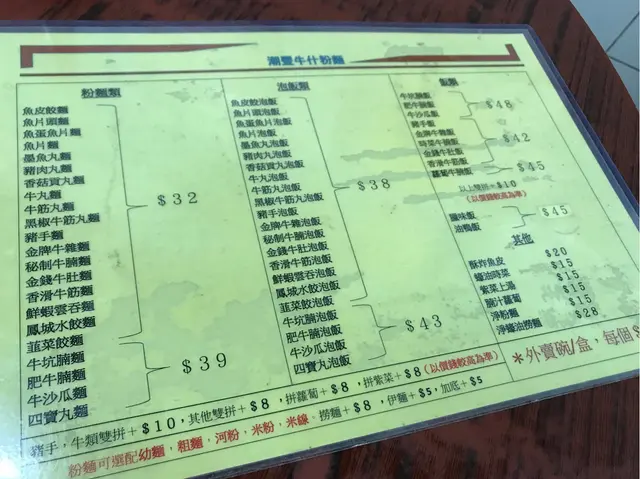 潮豐牛什粉麵
粉麵類
魚皮餃麵
魚片頭麵
魚蛋魚片麵
魚片麵
墨魚丸麵
豬肉丸麵
香菇貢丸麵
牛丸麵
牛筋丸麵
黑椒牛筋丸麵
豬手麵
金牌牛雜麵
秘制牛腩麵
金錢牛肚麵
香滑牛筋麵
鮮蝦雲吞麵
鳳城水餃麵
$32
韮菜餃麵
牛坑腩麵
肥牛腩麵
牛沙瓜麵
四寶丸麵
$39
泡飯類
魚皮餃泡飯
魚片頭泡飯
魚蛋魚片泡飯
魚片泡飯
墨魚丸泡飯
豬肉丸泡飯
香菇貢丸泡飯
牛丸泡飯
牛筋丸泡飯
黑椒牛筋丸泡飯
豬手泡飯
金牌牛雜泡飯
秘制牛腩泡飯
金錢牛肚泡飯
香滑牛筋泡飯
鮮蝦雲吞泡飯
鳳城水餃泡飯
韮菜餃泡飯
$38
牛坑腩泡飯
肥牛腩泡飯
牛沙瓜泡飯
四寶丸泡飯
$43
飯類
牛坑腩飯
肥牛腩飯
牛沙瓜飯
$48
豬手飯
金牌牛雜飯
時菜牛腩飯
金錢牛肚飯
香滑牛筋飯
$42
蘿蔔牛腩飯
$45
以上雙拼+$10
(以價錢較高為準)
臘味飯
油鴨飯
$45
其他
酥炸魚皮 $20
蠔油時菜 $15
紫菜上湯 $15
腩汁蘿蔔 $15
淨粉麵 $15
淨蠔油撈麵 $28
*外賣碗/盒,每個$
豬手,牛類雙拼+$10,其他雙拼+$8,拼蘿蔔+$8,拼紫菜+$8(以價錢較高為準)
粉麵可選配幼麵,粗麵,河粉,米粉,米線,撈麵+$8,伊麵+$5,加底+$5